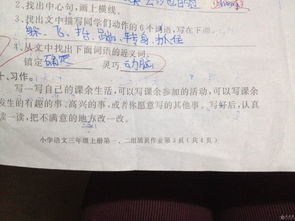 2、找出中心句,画上横线。
3、找出文中描写同学们动作的6个词语,写在下面。
躲、飞、抬、踢、转身、抓住
4、从文中找出下面词语的近义词。
镇定 灵巧
十、习作。
写一写自己的课余生活,可以写课余参加的活动,可以写课余
发生的有趣的事、高兴的事,或者你愿意写的其他事。写好后,认真
读一读,把不满意的地方改一改。
小学语文三年级上册第一、二组质员作业第4页(共4页)